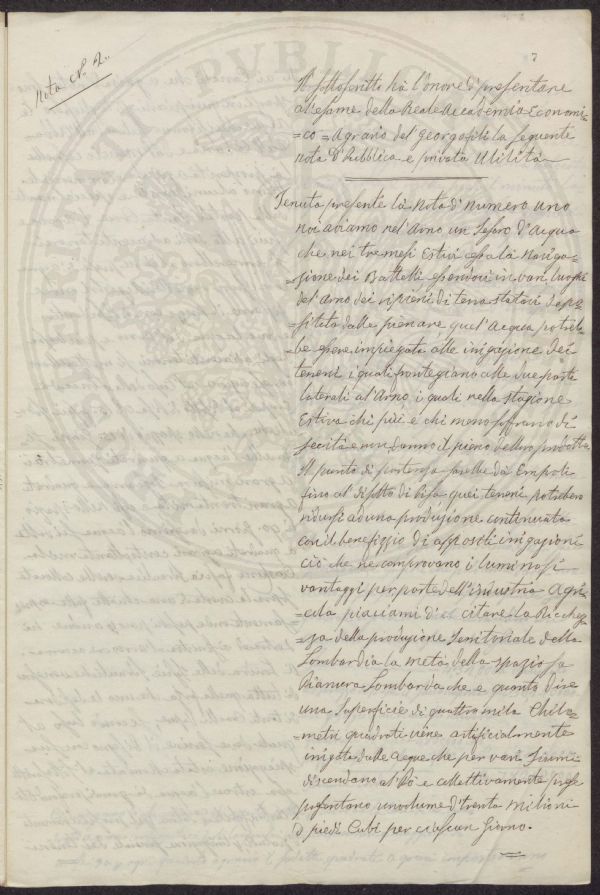 Nota N.º 2.
7
Il sottoscritto hà l'onore di presentare
all'esame della Reale Accademia Economi=
=co = Agrario del georgofili la seguente
nota D'Pubblica e privata Utilità
Tenuta presente la Nota di numero uno
noi abiamo nel'Arno un Tesoro D'Acqua
che nei tre mesi Estivi cessa la naviga=
=zione dei Battelli essendovi in vari luoghi
del'Arno dei ripieni di terra statavi depo=
=sitata dalle piene are, quel'Acqua potreb=
=be essere impiegata alle irrigazione dei
terreni i quali fronteggiano alle due parte
laterali al'Arno i quali nella stagione
Estiva chi più e chi meno soffrano di
secità e non danno il pieno dellor prodotto
Il punto di partenza sarebbe da Empoli
fino al disotto di Pisa quei terreni potrebero
ridursi ad una produzione continuata
con il benefizio di appositi irrigazioni
ciò che ne comprovano i luminosi
vantaggi per parte dell'Industria Agri=
=cola piaciami di citare la Ricchez=
=za della produzione Territoriale della
Lombardia la metà della spaziosa
Pianura Lombarda che e quanto dire
una Superficie di quattro mila Chilo=
=metri quadrati viene artificialmente
irrigata dalle acque che per vari Fiumi
discendano al Pò e collettivamente prese
presentano un volume d'trenta milioni
D piedi Cubi per ciascun Giorno.